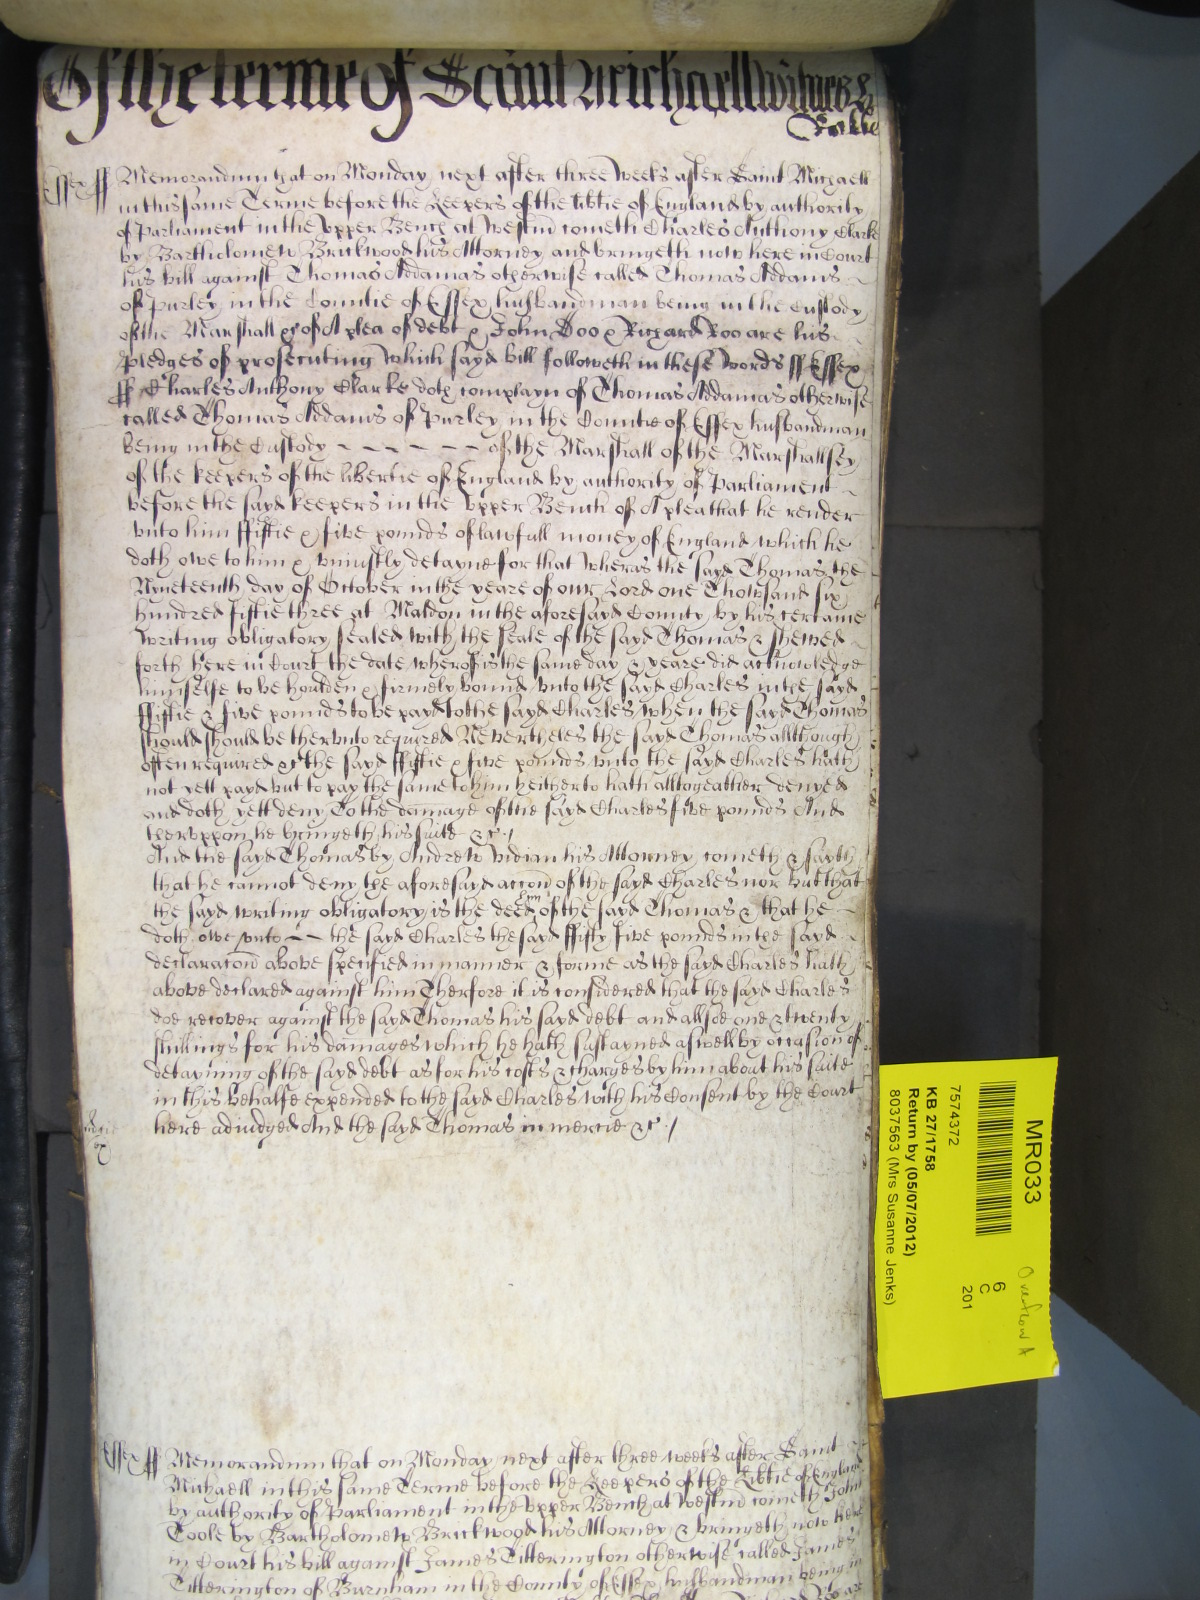 Of the terme of Saint Michaell Witnes &
Rolle
Essex ss Memorandum that on Monday next after three weeks after Saint Michaell
in this same Terme before the Keepers of the libtie of England by authority
of Parliament in the Vpper Bench at Westm cometh Charles Anthony Clarke
by Bartholomew Brickwood his Attorney and bringeth now here in Court
his bill against Thomas Addamas otherwise called Thomas Addams
of Purley in the Countie of Essex husbandman being in the Custody
of the Marshall &c of A plea of debt & John Doo & Richard Roo are his
pledges of prosecuting which sayd bill followeth in these words ss Essex
ss Charles Anthony Clarke doth complayn of Thomas Addamas otherwise
called Thomas Addams of Purley in the Countie of Essex husbandman
being in the Custody - - - - - - of the Marshall of the Marshallsey
of the keepers of the libertie of England by authority of Parliament
before the sayd keepers in the Vpper Bench of A plea that he render
vnto him ffiftie & five pounds of lawfull money of England which he
doth owe to him & vniustly detayne for that wheras the sayd Thomas the
Nyneteenth day of October in the yeare of our Lord one Thowsand six
hundred fiftie three at Maldon in the aforesayd County by his certaine
writing obligatory sealed with the seale of the sayd Thomas & shewed
forth here in Court the date wherof is the same day & yeare did acknowledge
himselfe to be houlden & firmely bound vnto the sayd Charles in the sayd
ffiftie & five pounds to be payd to the sayd Charles when the sayd Thomas
should should be thervnto required Nevertheles the sayd Thomas allthough
often required &c the sayd ffiftie & five pounds vnto the sayd Charles hath
not yett payd but to pay the same to him heitherto hath alltogeather denyed
and doth yett deny To the damage of the sayd Charles five pounds And
thervppon he bringeth his suite &c
And the sayd Thomas by Andrew Vdian his Attorney cometh & sayth
that he cannot deny the aforesayd accon of the sayd Charles nor but that
the sayd writing obligatory is the deed of the sayd Thomas & that he
doth owe vnto - - the sayd Charles the sayd ffifty five pounds in the sayd
declaracon above specified in manner & forme as the sayd Charles hath
above declared against him Therfore it is considered that the sayd Charles
doe recover against the sayd Thomas his sayd debt and allsoe one & twenty
shillings for his damages which he hath sustayned aswell by occasion of
detayning of the sayd debt as for his costs & charges by him about his suite
in this behalfe expended to the sayd Charles with his Consent by the Court
here adiudged And the sayd Thomas in mercie &c
Essex ss Memorandum that on Monday next after three weeks after Saint
Michaell in this same Terme before the Keepers of the Libtie of England
by authority of Parliament in the Vpper Bench at Westm cometh John
Toole by Bartholomew Brickwood his Attorney & bringeth now here
in Court his bill against James Titterington otherwise called James
Titterington of Burnham in the County of Essex husbandman being in
MR033
7574372
KB 27/1758
Return by (05/07/2012)
8037563 (Mrs Susanne Jenks)
6
C
201
Overflow A